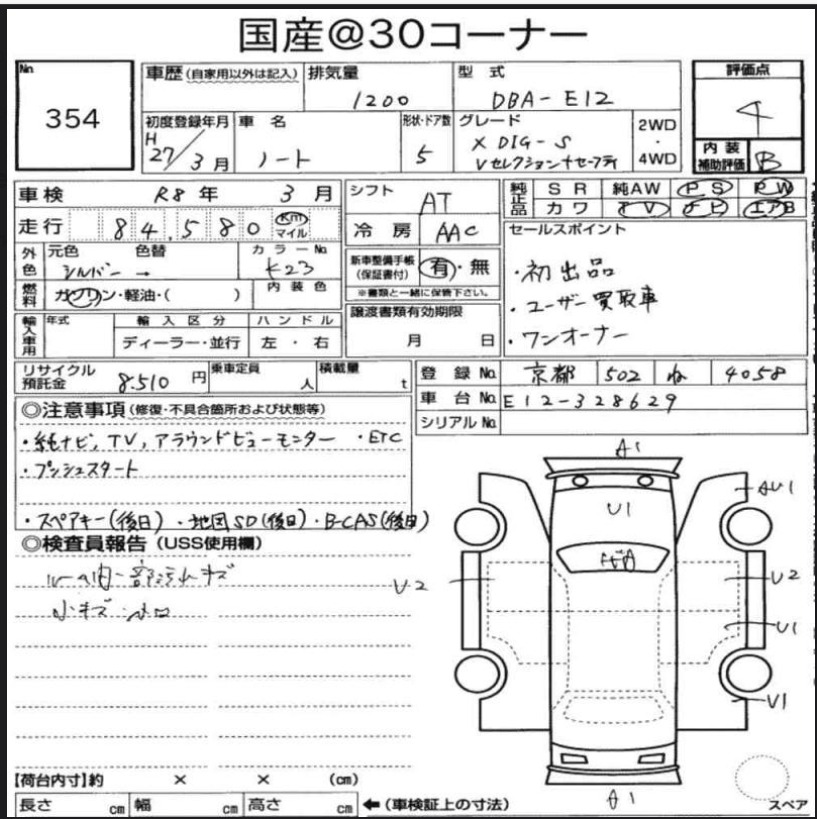 国産@30コーナー
No.
354
車歴(自家用以外は記入)
排気量
1200
型 式
DBA-E12
評価点
4
初度登録年月
H
27/3月
車 名
ノート
形状・ドア数
5
グレード
X DIG-S
Vセレクション+セーフティ
2WD
・
4WD
内 装
補助評価
B
車 検 R8年 3月
シフト
AT
純正品
SR 純AW PS PW
カワ TV ナビ エアB
走行 84,580 km マイル
冷 房
AAC
セールスポイント
・初出品
・ユーザー買取車
・ワンオーナー
外色
元色
シルバー
色替
→
カラーNo.
K23
新車整備手帳
(保証書付)
有・無
※書類と一緒に保管下さい。
燃料
ガソリン・軽油・( )
内 装 色
輸入車用
年式
輸 入 区 分
ディーラー・並行
ハ ン ド ル
左 ・ 右
譲渡書類有効期限
月 日
リサイクル
預託金
8,510 円
乗車定員
人
積載量
t
登 録 No. 京都 502 ね 4058
車 台 No. E12-328629
シリアル No.
◎注意事項(修復・不具合箇所および状態等)
・純ナビ, TV, アラウンドビューモニター ・ETC
・プッシュスタート
・スペアキー(後日)・地図SD(後日)・B-CAS(後日)
◎検査員報告 (USS使用欄)
小キズ
A1
AU1
U1
U2
U2
U1
U1
A1
スペア
【荷台内寸】約 × × (cm)
長さ cm 幅 cm 高さ cm
←(車検証上の寸法)